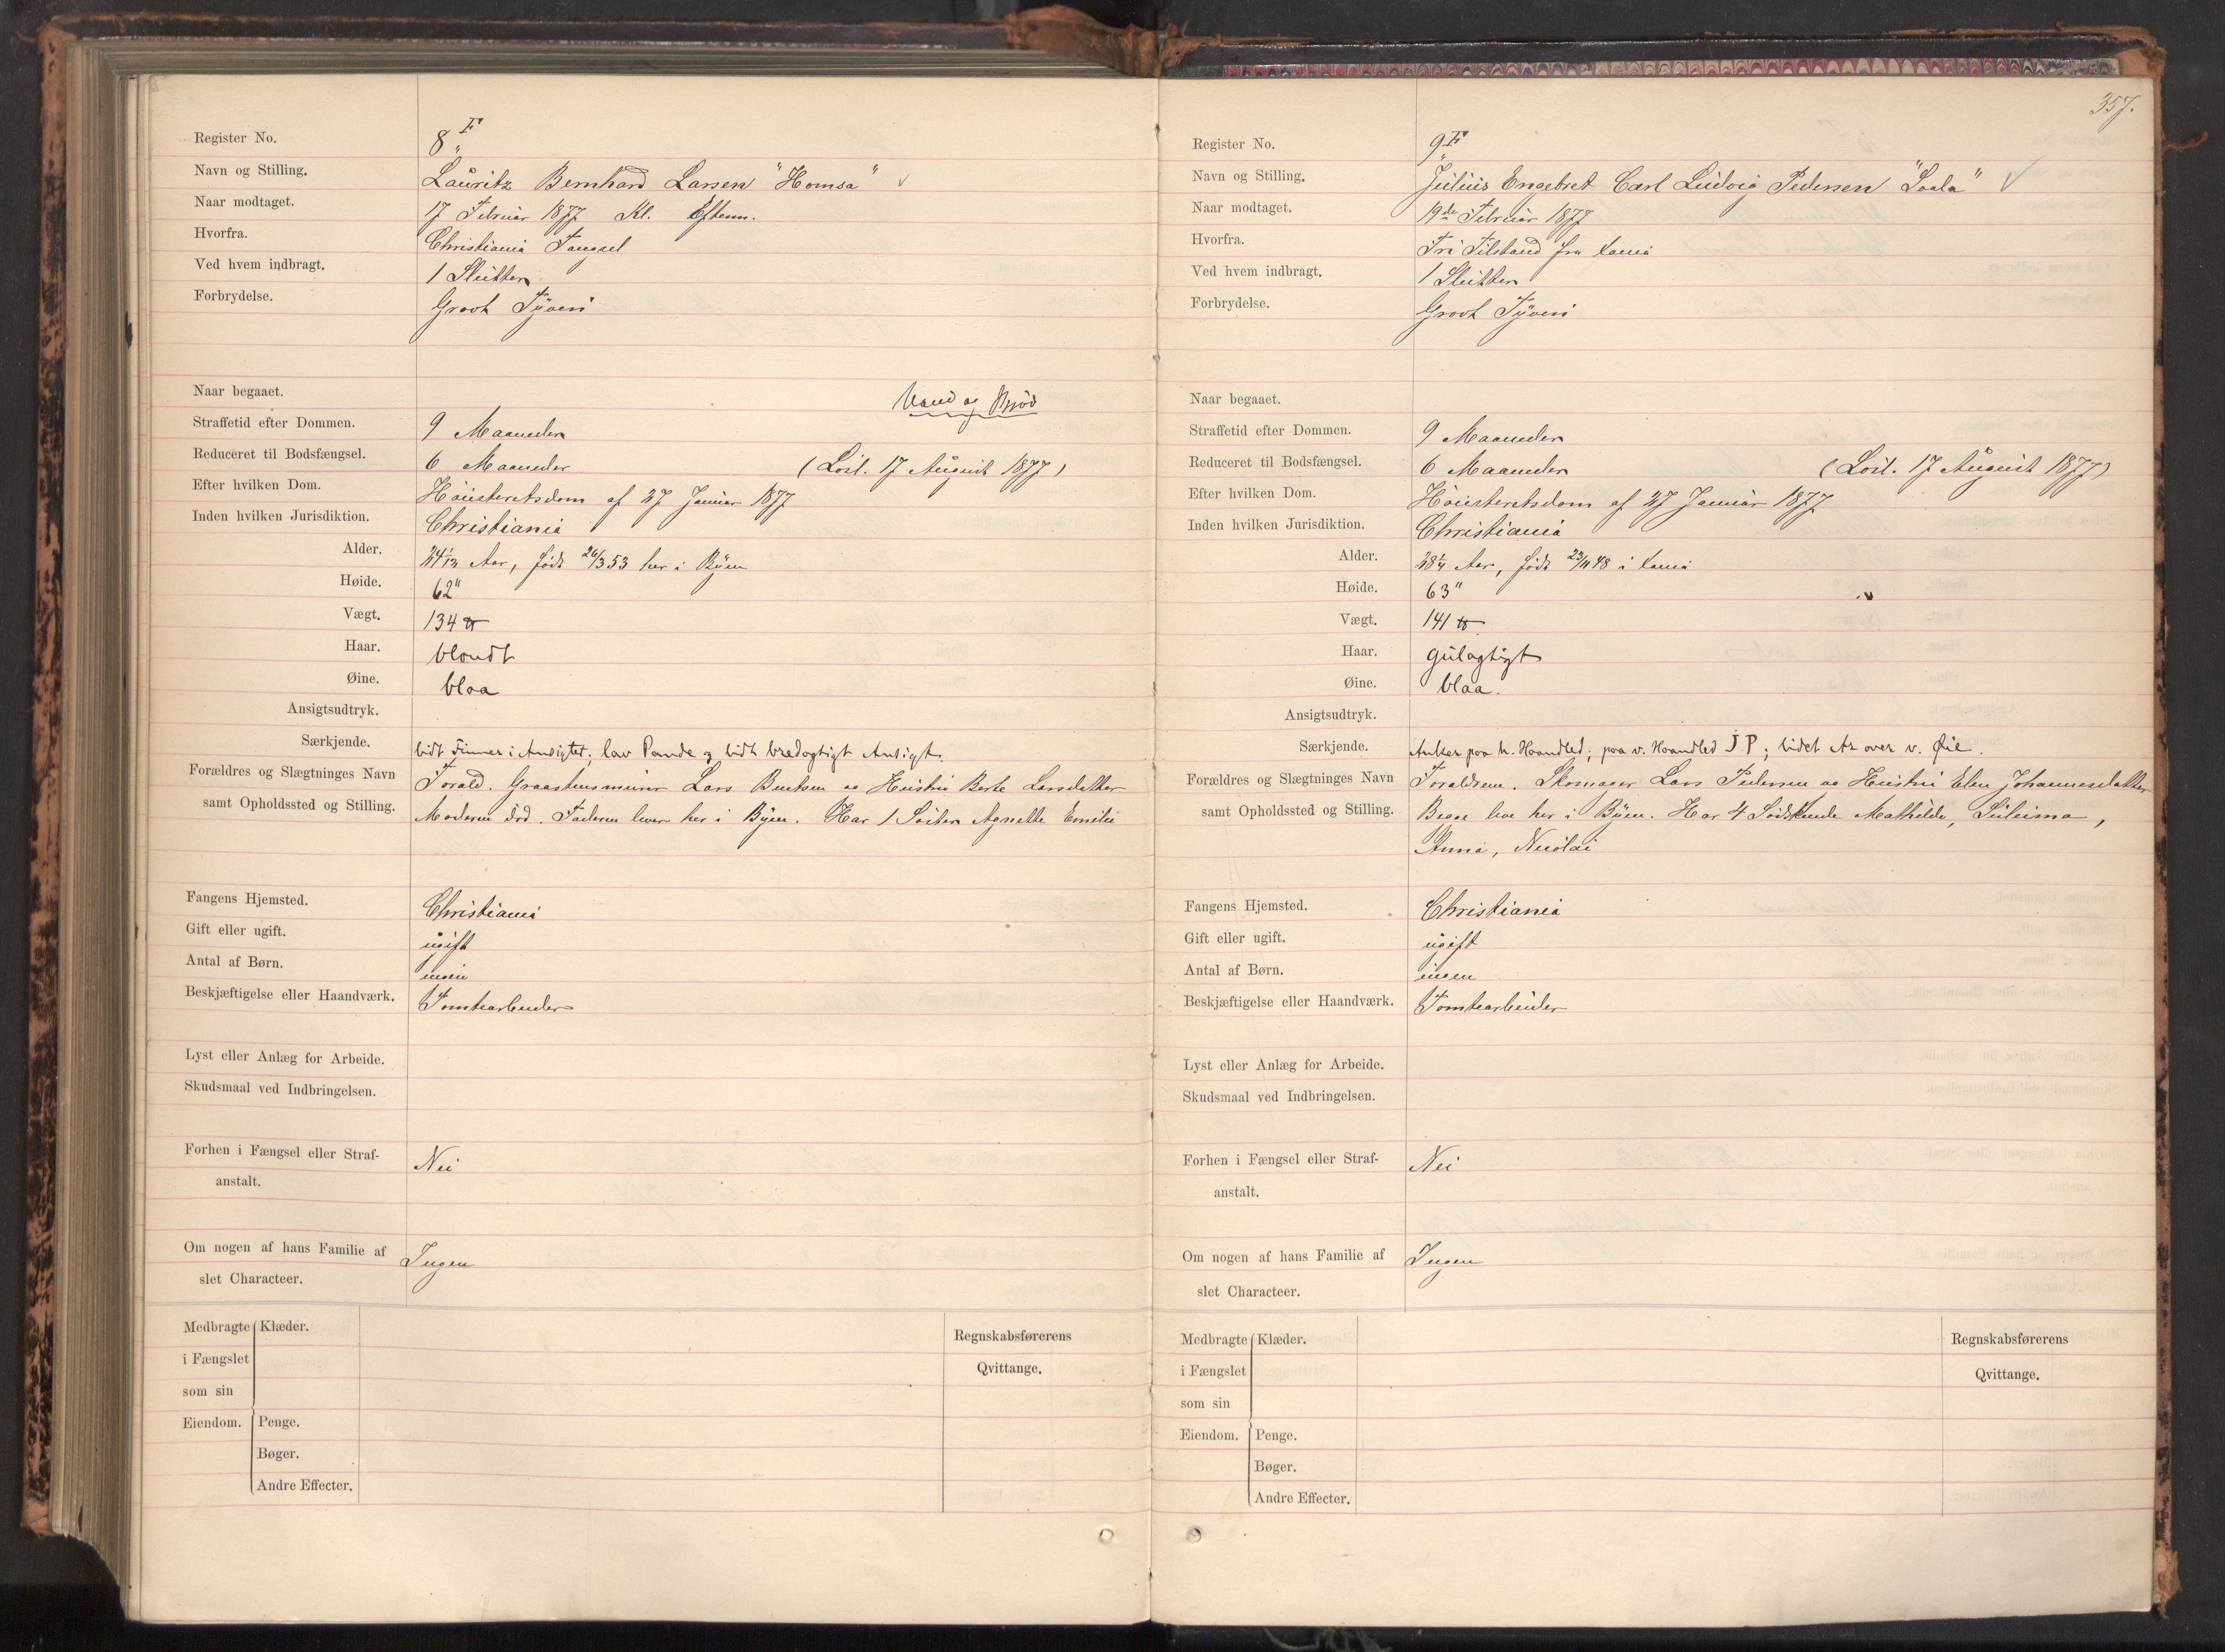 Register No. 8 F
Navn og Stilling. Lauritz Bernhard Larsen "Homsa"
Naar modtaget. 17 Februar 1877 Kl. Efterm.
Hvorfra. Christiania Fangsel
Ved hvem indbragt. 1 Slutter
Forbrydelse. Grovt Tyveri
Naar begaaet.
Vand og Brød
Straffetid efter Dommen. 9 Maaneder
Reduceret til Bodsfængsel. 6 Maaneder (Løsl. 17 August 1877)
Efter hvilken Dom. Høiesteretsdom af 27 Januar 1877
Inden hvilken Jurisdiktion. Christiania
Alder. Aar, født 26/3 53 her i Byen
Høide. 62"
Vægt. 134 ℔
Haar. blondt
Øine. blaa
Ansigtsudtryk.
Særkjende. lidt Finner i Ansigtet; lav Pande og lidt bredagtigt Ansigt.
Forældres og Slægtninges Navn Forald. Graastensmurer Lars Berntsen og Hustru Berte Larsdatter
samt Opholdssted og Stilling. Moderen død. Faderen lever her i Byen. Har 1 Søster Agnette Emilie
Fangens Hjemsted. Christiania
Gift eller ugift. ugift
Antal af Børn. ingen
Beskjæftigelse eller Haandværk. Tomtearbeider
Lyst eller Anlæg for Arbeide.
Skudsmaal ved Indbringelsen.
Forhen i Fængsel eller Straf- Nei
anstalt.
Om nogen af hans Familie af Ingen
slet Characteer.
Medbragte Klæder.
i Fængslet
som sin
Eiendom. Penge.
Bøger.
Andre Effecter.
Regnskabsførerens
Qvittange.
357.
Register No. 9 F
Navn og Stilling. Julius Engebret Carl Ludvig Pedersen "Laala"
Naar modtaget. 19de Februar 1877
Hvorfra. Fri Tilstand fra Xania
Ved hvem indbragt. 1 Slutter
Forbrydelse. Grovt Tyveri
Naar begaaet.
Straffetid efter Dommen. 9 Maaneder
Reduceret til Bodsfængsel. 6 Maaneder (Løsl. 17 August 1877)
Efter hvilken Dom. Høiesteretsdom af 27 Januar 1877
Inden hvilken Jurisdiktion. Christiania
Alder. 28¼ Aar, født 23/11 48 i Xania
Høide. 63"
Vægt. 141 ℔
Haar. gulagtigt
Øine. blaa.
Ansigtsudtryk.
Særkjende. Anker paa h. Haandled; paa v. Haandled J.P; lidet Ar over v. Øie.
Forældres og Slægtninges Navn Foraldrene. Skomager Lars Pedersen og Hustru Elen Johannesdatter
samt Opholdssted og Stilling. Begge leve her i Byen. Har 4 Sødskende Mathilde, Luleima,
Anna, Nicolai
Fangens Hjemsted. Christiania
Gift eller ugift. ugift
Antal af Børn. ingen
Beskjæftigelse eller Haandværk. Tomtearbeider
Lyst eller Anlæg for Arbeide.
Skudsmaal ved Indbringelsen.
Forhen i Fængsel eller Straf- Nei
anstalt.
Om nogen af hans Familie af Ingen
slet Characteer.
Medbragte Klæder.
i Fængslet
som sin
Eiendom. Penge.
Bøger.
Andre Effecter.
Regnskabsførerens
Qvittange.